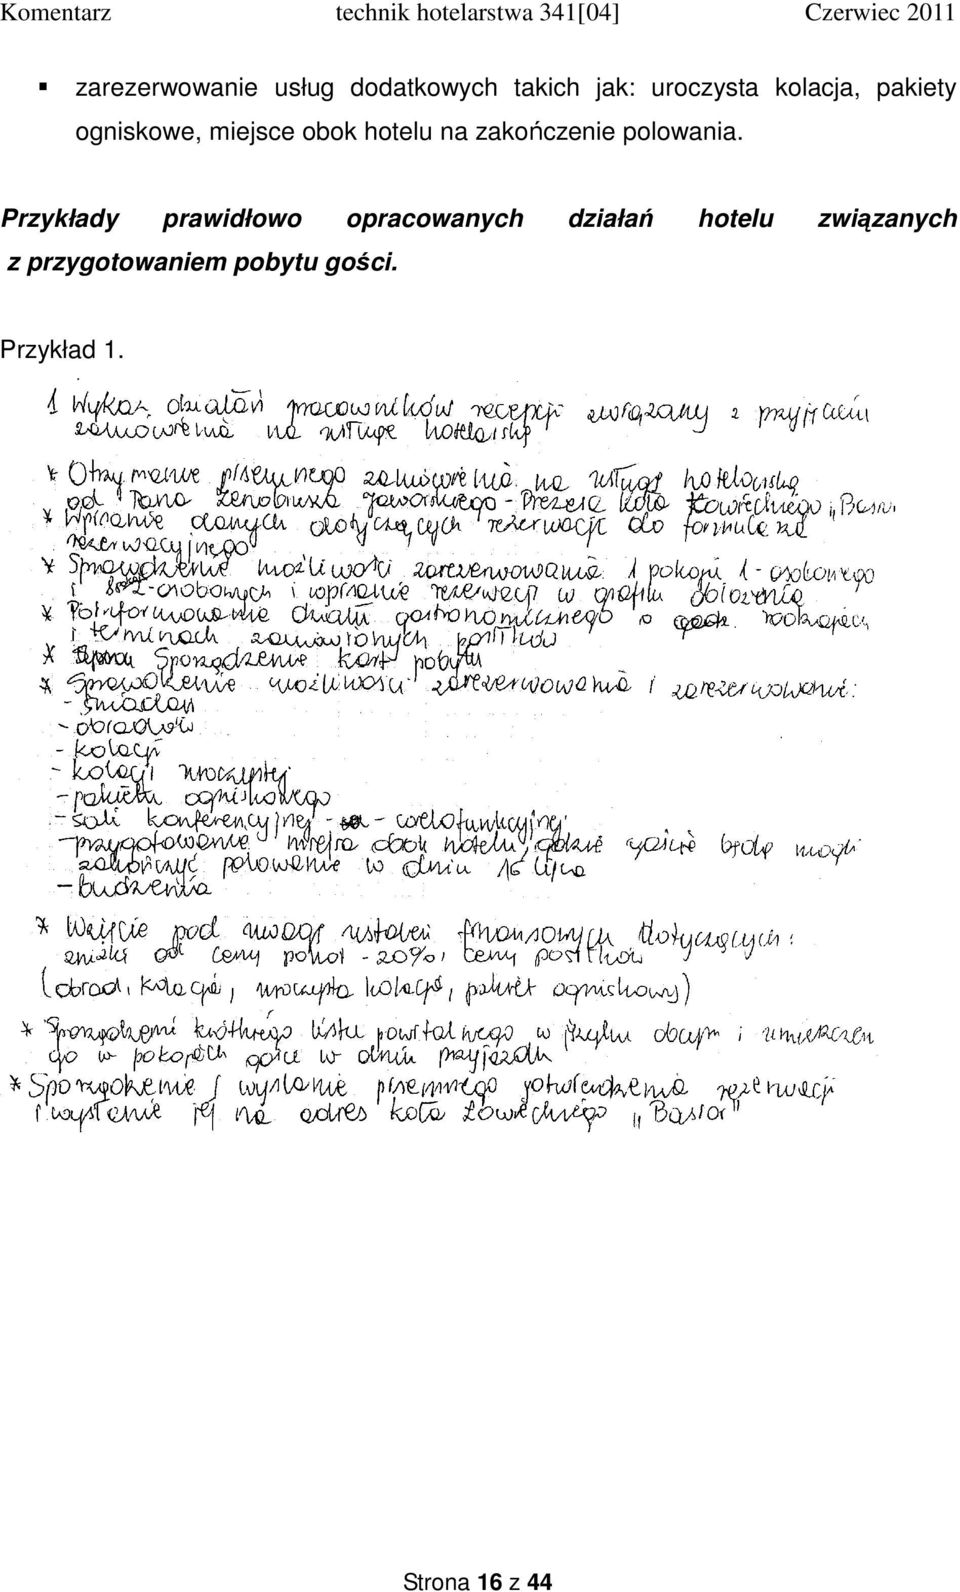 Komentarz technik hotelarstwa 341[04] Czerwiec 2011
▪ zarezerwowanie usług dodatkowych takich jak: uroczysta kolacja, pakiety
ogniskowe, miejsce obok hotelu na zakończenie polowania.
Przykłady prawidłowo opracowanych działań hotelu związanych
z przygotowaniem pobytu gości.
Przykład 1.
1 Wykaz działań pracowników recepcji związany z przyjęciem
zamówienia na usługę hotelarską
* Otrzymanie pisemnego zamówienia na usługę hotelarską
od Pana Zenobiusza Jaworskiego - Prezesa Koła Łowieckiego „Basior
* Wpisanie danych dotyczących rezerwacji do formularza
rezerwacyjnego
* Sprawdzenie możliwości zarezerwowania 1 pokoju 1-osobowego
i 2-osobowych i wpisanie rezerwacji w grafiku obłożenia
* Poinformowanie działu gastronomicznego o rodzajach
i terminach zamówionych posiłków
* Sporządzenie kart pobytu
* Sprawdzenie możliwości zarezerwowania i zarezerwowanie:
- śniadań
- obiadów
- kolacji
- kolacji uroczystej
- pakietu ogniskowego
- sali konferencyjnej - wielofunkcyjnej
- przygotowanie miejsca obok hotelu, gdzie goście będą mogli
zakończyć polowanie w dniu 16 lipca
- budzenia
* Wzięcie pod uwagę ustaleń finansowych dotyczących:
zniżki od ceny pokoi - 20%, ceny posiłków
(obiad, kolacja, uroczysta kolacja, pakiet ogniskowy)
* Sporządzeni krótkiego listu powitalnego w języku obcym i umieszczen
go w pokojach gości w dniu przyjazdu
* Sporządzenie i wysłanie pisemnego potwierdzenia rezerwacji
i wysłanie jej na adres koła Łowieckiego „Basior"
Strona 16 z 44